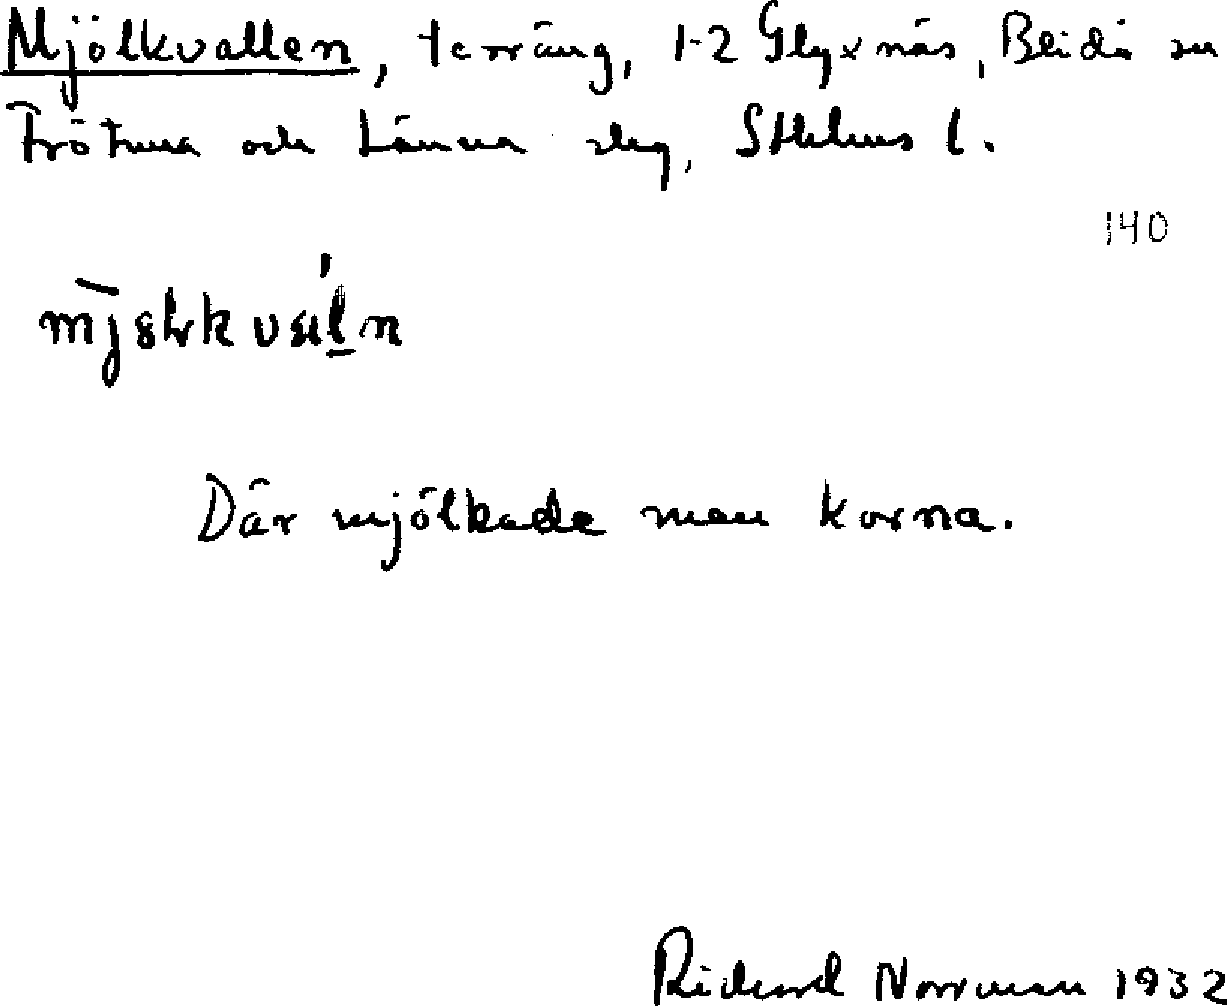 Mjölkvallen, terräng, 1-2 Glyxnäs, Blidö sn
Frötuna och Länna slg, Sthlms l.
140
Där mjölkade man korna.
Richard Norrman 1932